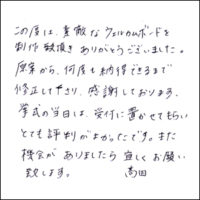 この度は、素敵なウェルカムボードを
制作頂きありがとうございました。
原案から、何度も納得できるまで
修正して下さり、感謝しております。
挙式の当日は、受付に置かせてもらい
とても評判がよかったです。また
機会がありましたら宜しくお願い
致します。 高田